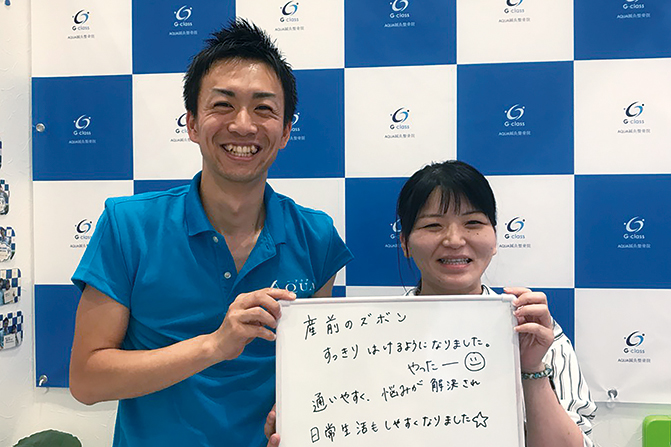 G-class
AQUA鍼灸整骨院
AQUA
産前のズボン
すっきりはけるようになりました。
やったー☺
通いやすく、悩みが解決され
日常生活もしやすくなりました☆